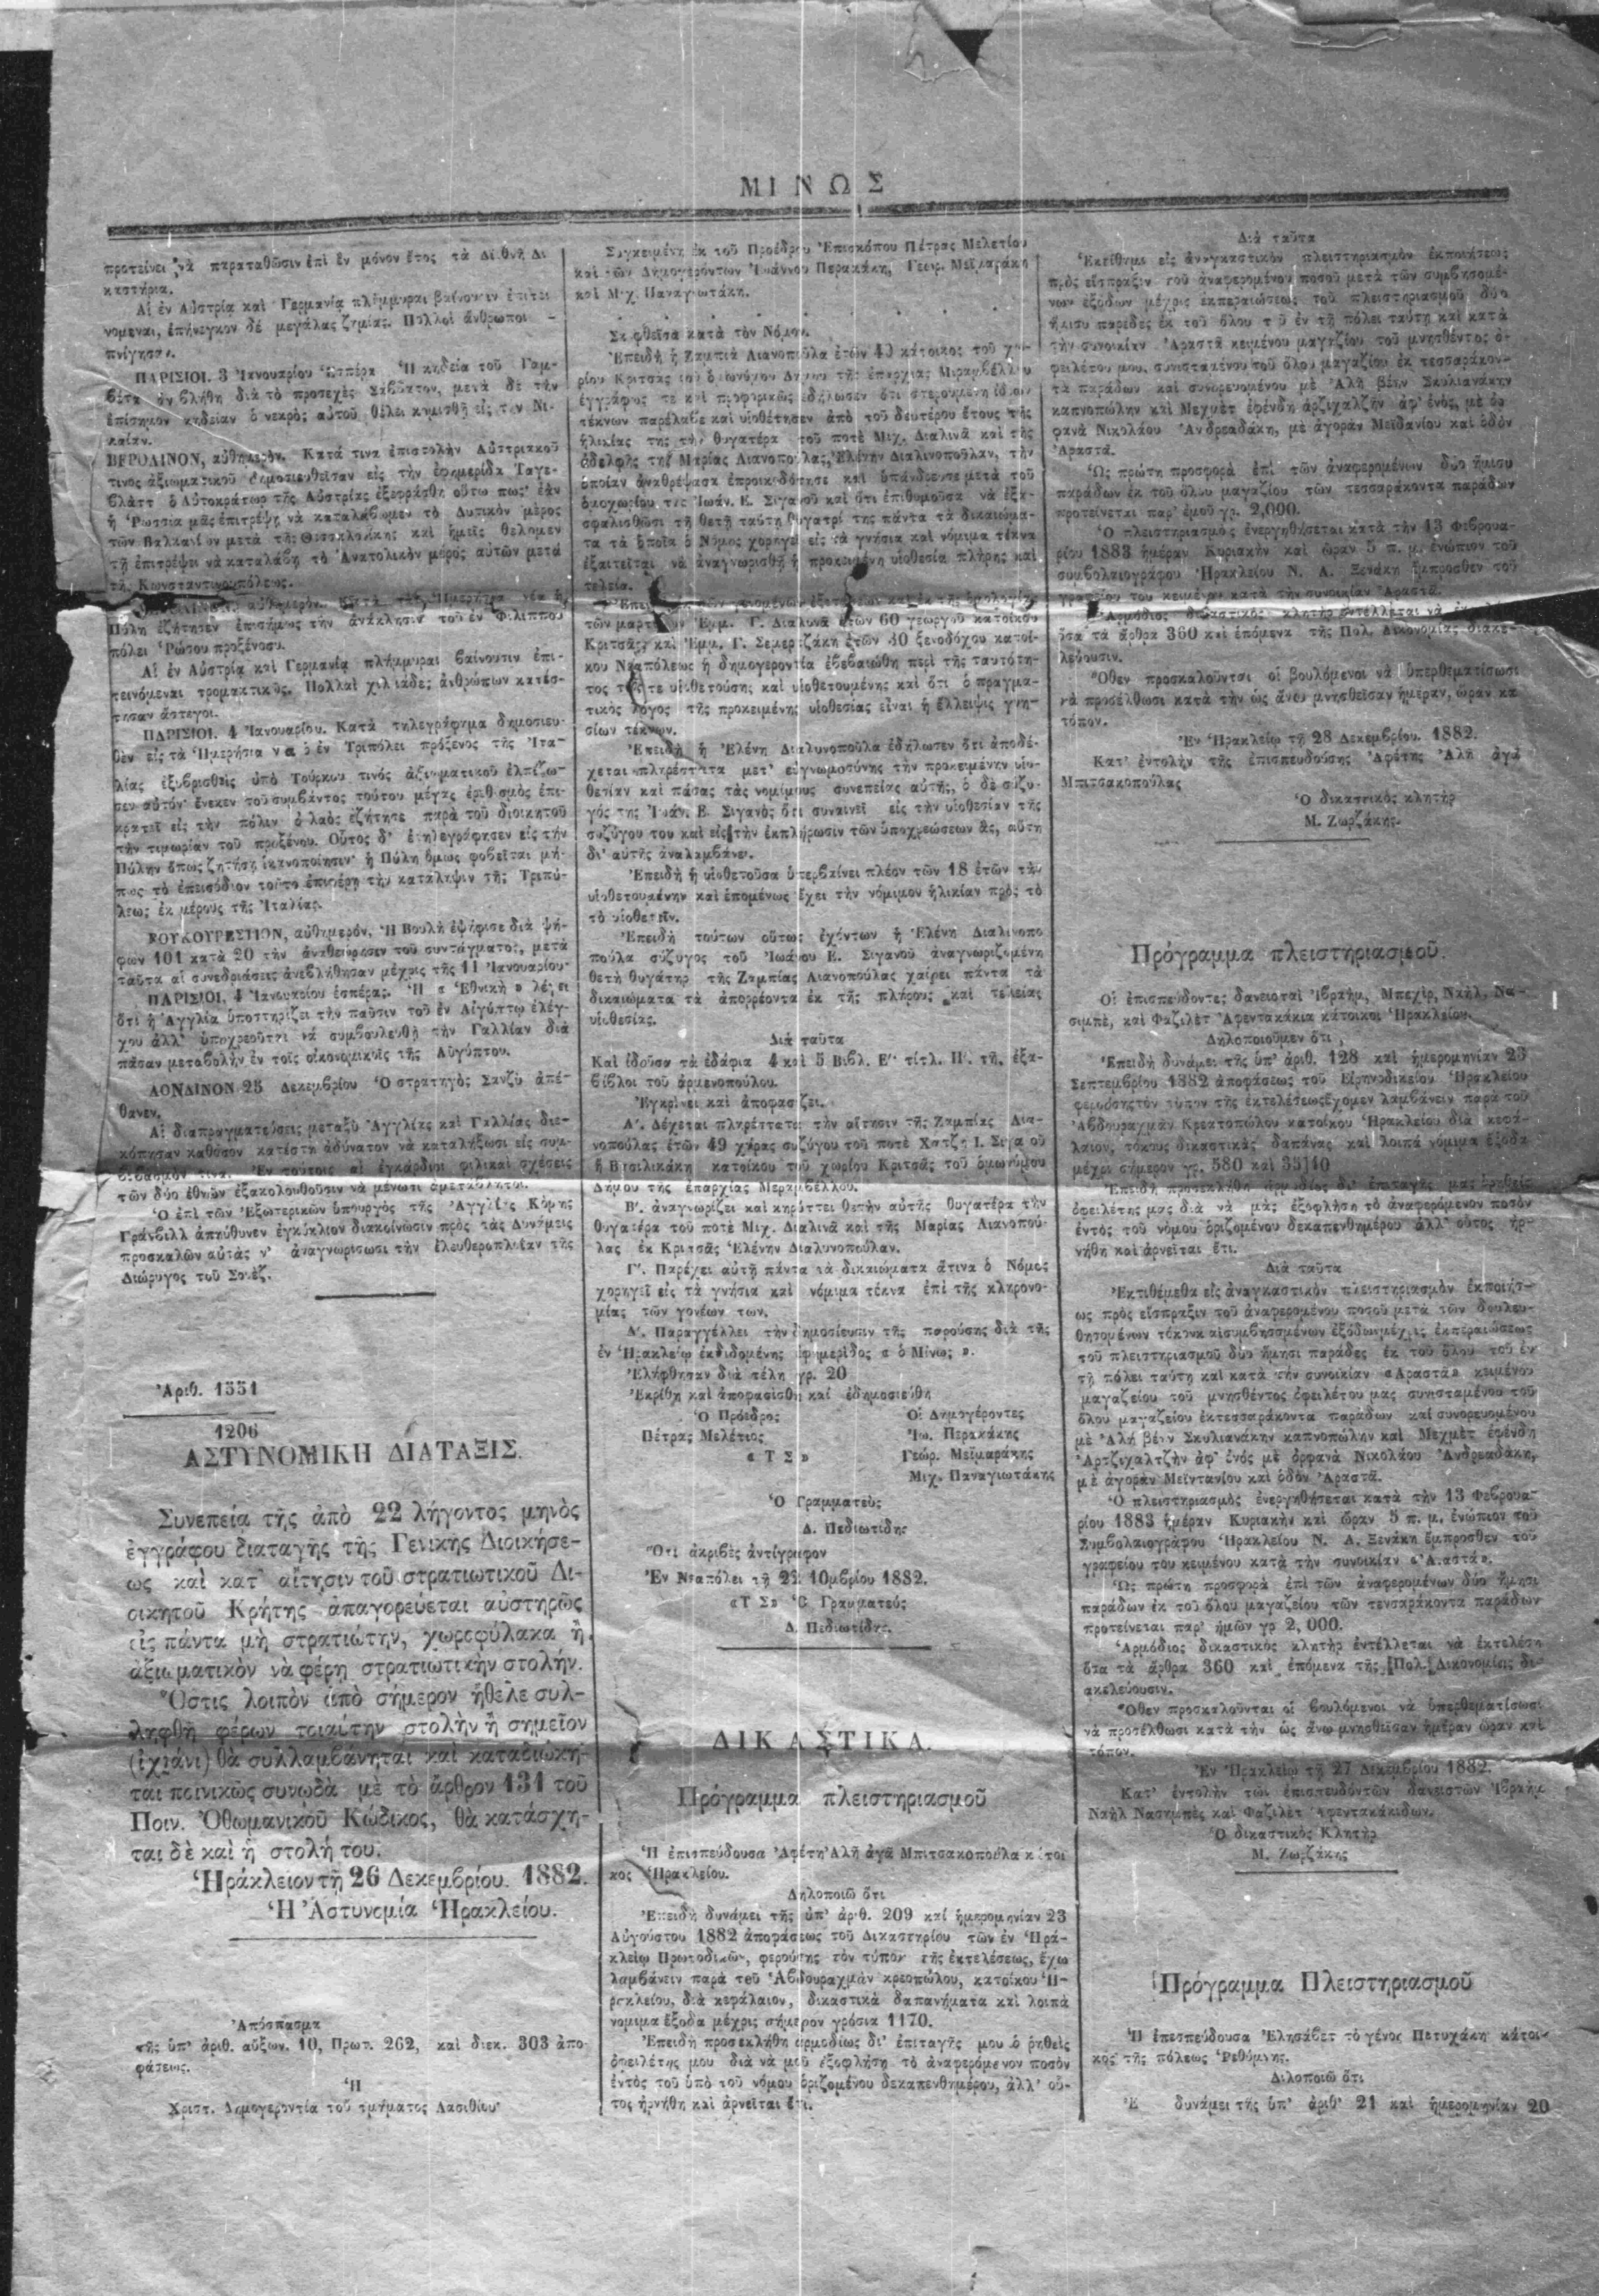 ΜΙΝΩΣ
προτείνει νὰ παραταθῶσιν ἐπὶ ἓν μόνον ἔτος τὰ Διεθνῆ Δι
καστήρια.
Αἱ ἐν Αὐστρίᾳ καὶ Γερμανίᾳ πλήμμυραι βαίνουσιν ἐπιτει
νομεναι, ἐπήνεγκον δὲ μεγάλας ζημίας. Πολλοὶ ἄνθρωποι
πνίγησαν.
ΠΑΡΙΣΙΟΙ. 3 Ἰανουαρίου Ἑσπέρα Ἡ κηδεία τοῦ Γαμ-
βέτα ἀνεβλήθη διὰ τὸ προσεχὲς Σάββατον, μετὰ δὲ τὴν
ἐπίσημον κηδείαν ὁ νεκρὸς αὐτοῦ θέλει κομισθῆ εἰς τὴν Νί-
καιαν.
ΒΕΡΟΛΙΝΟΝ, αὐθημερόν. Κατά τινα ἐπιστολὴν Αὐστριακοῦ
τινος ἀξιωματικοῦ δημοσιευθεῖσαν εἰς τὴν ἐφημερίδα Ταγε-
βλὰττ ὁ Αὐτοκράτωρ τῆς Αὐστρίας ἐξεφράσθη οὕτω πως· ἐὰν
ἡ Ῥωσσία μᾶς ἐπιτρέψῃ νὰ καταλάβωμεν τὸ Δυτικὸν μέρος
τῶν Βαλκανίων μετὰ τῆς Θεσσαλονίκης καὶ ἡμεῖς θέλομεν
τῇ ἐπιτρέψει νὰ καταλάβῃ τὸ Ἀνατολικὸν μέρος αὐτῶν μετὰ
τῆς Κωνσταντινουπόλεως.
αὐθημερόν. Κατὰ τὴν Ἡμερησία νέα ἡ
Πύλη ἐζήτησεν ἐπισήμως τὴν ἀνάκλησιν τοῦ ἐν Φιλιππου
πόλει Ῥώσου προξένου.
Αἱ ἐν Αὐστρίᾳ καὶ Γερμανίᾳ πλήμμυραι βαίνουσιν ἐπι-
τεινόμεναι τρομακτικῶς. Πολλαὶ χιλιάδες ἀνθρώπων κατέσ-
τησαν ἄστεγοι.
ΠΑΡΙΣΙΟΙ. 4 Ἰανουαρίου. Κατὰ τηλεγράφημα δημοσιευ-
θὲν εἰς τὰ Ἡμερήσια νέα ὁ ἐν Τριπόλει πρόξενος τῆς Ἰτα-
λίας ἐξυβρισθεὶς ὑπὸ Τούρκου τινὸς ἀξιωματικοῦ
σεν αὐτόν· ἕνεκεν τοῦ συμβάντος τούτου μέγας ἐρεθισμὸς ἐπι-
κρατεῖ εἰς τὴν πόλιν· ὁ λαὸς ἐζήτησε παρὰ τοῦ διοικητοῦ
τὴν τιμωρίαν τοῦ προξένου. Οὗτος δ᾽ ἐτηλεγράφησεν εἰς τὴν
Πύλην ὅπως ζητήσῃ ἱκανοποίησιν· ἡ Πύλη ὅμως φοβεῖται μή-
πως τὸ ἐπεισόδιον τοῦτο ἐπιφέρῃ τὴν κατάληψιν τῆς Τριπό-
λεως ἐκ μέρους τῆς Ἰταλίας.
ΒΟΥΚΟΥΡΕΣΤΙΟΝ, αὐθημερόν. Ἡ Βουλὴ ἐψήφισε διὰ ψή-
φων 101 κατὰ 20 τὴν ἀναθεώρησιν τοῦ συντάγματος, μετὰ
ταῦτα αἱ συνεδριάσεις ἀνεβλήθησαν μέχρις τῆς 11 Ἰανουαρίου·
ΠΑΡΙΣΙΟΙ, 4 Ἰανουαρίου ἑσπέρας. Ἡ «Ἐθνικὴ» λέγει
ὅτι ἡ Ἀγγλία ὑποστηρίζει τὴν παῦσιν τοῦ ἐν Αἰγύπτῳ ἐλέγ-
χου ἀλλ᾽ ὑποχρεοῦται νὰ συμβουλευθῇ τὴν Γαλλίαν διὰ
πᾶσαν μεταβολὴν ἐν τοῖς οἰκονομικοῖς τῆς Αἰγύπτου.
ΛΟΝΔΙΝΟΝ 25 Δεκεμβρίου Ὁ στρατηγὸς Σανζὺ ἀπέ-
θανεν.
Αἱ διαπραγματεύσεις μεταξὺ Ἀγγλίας καὶ Γαλλίας διε-
κόπησαν καθόσον κατέστη ἀδύνατον νὰ καταλήξωσι εἰς συμ-
βιβασμόν τινα. Ἐν τούτοις αἱ ἐγκάρδιοι φιλικαὶ σχέσεις
τῶν δύο ἐθνῶν ἐξακολουθοῦσιν νὰ μένωσι ἀμετάβλητοι.
Ὁ ἐπὶ τῶν Ἐξωτερικῶν ὑπουργὸς τῆς Ἀγγλίας Κόμης
Γράνβιλλ ἀπηύθυνεν ἐγκύκλιον διακοίνωσιν πρὸς τὰς Δυνάμεις
προσκαλῶν αὐτὰς ν᾽ ἀναγνωρίσωσι τὴν ἐλευθεροπλοΐαν τῆς
Διώρυγος τοῦ Σουέζ.
Ἀριθ. 1551
1206
ΑΣΤΥΝΟΜΙΚΗ ΔΙΑΤΑΞΙΣ.
Συνεπείᾳ τῆς ἀπὸ 22 λήγοντος μηνὸς
ἐγγράφου διαταγῆς τῆς Γενικῆς Διοικήσε-
ως καὶ κατ᾽ αἴτησιν τοῦ στρατιωτικοῦ Δι-
οικητοῦ Κρήτης ἀπαγορεύεται αὐστηρῶς
εἰς πάντα μὴ στρατιώτην, χωροφύλακα ἢ
ἀξιωματικὸν νὰ φέρῃ στρατιωτικὴν στολήν.
Ὅστις λοιπὸν ἀπὸ σήμερον ἤθελε συλ-
ληφθῆ φέρων τοιαύτην στολὴν ἢ σημεῖον
(ἰχιάνι) θὰ συλλαμβάνηται καὶ καταδιώκη-
ται ποινικῶς συνῳδὰ μὲ τὸ ἄρθρον 131 τοῦ
Ποιν. Ὀθωμανικοῦ Κώδικος, θὰ κατάσχη-
ται δὲ καὶ ἡ στολή του.
Ἡράκλειον τῇ 26 Δεκεμβρίου. 1882.
Ἡ Ἀστυνομία Ἡρακλείου.
Ἀπόσπασμα
τῆς ὑπ᾽ ἀριθ. αὔξων. 10, Πρωτ. 262, καὶ διεκ. 303 ἀπο-
φάσεως.
Ἡ
Χριστ. Δημογεροντία τοῦ τμήματος Λασιθίου·
Συγκειμένη ἐκ τοῦ Προέδρου Ἐπισκόπου Πέτρας Μελετίου
καὶ τῶν Δημογερόντων Ἰωάννου Περακάκη, Γεωρ. Μεϊμαράκη
καὶ Μιχ. Παναγιωτάκη.
Σκεφθεῖσα κατὰ τὸν Νόμον.
Ἐπειδὴ ἡ Ζαμπιὰ Λιανοπούλα ἐτῶν 49 κάτοικος τοῦ χω-
ρίου Κριτσᾶς τοῦ ὁμωνύμου Δήμου τῆς ἐπαρχίας Μιραμβέλλου
ἐγγράφως τε καὶ προφορικῶς ἐδήλωσεν ὅτι στερουμένη ἰδίων
τέκνων παρέλαβε καὶ υἱοθέτησεν ἀπὸ τοῦ δευτέρου ἔτους τῆς
ἡλικίας της τὴν θυγατέρα τοῦ ποτὲ Μιχ. Διαλινᾶ καὶ τῆς
ἀδελφῆς της Μαρίας Λιανοπούλας, Ἑλένην Διαλινοποῦλαν, τὴν
ὁποίαν ἀναθρέψασα ἐπροικοδότησε καὶ ὑπάνδρευσε μετὰ τοῦ
ὁμοχωρίου της Ἰωάν. Ε. Σιγανοῦ καὶ ὅτι ἐπιθυμοῦσα νὰ ἐξα-
σφαλισθῶσι τῇ θετῇ ταύτῃ θυγατρί της πάντα τὰ δικαιώμα-
τα τὰ ὁποῖα ὁ Νόμος χορηγεῖ εἰς τὰ γνήσια καὶ νόμιμα τέκνα
ἐξαιτεῖται νὰ ἀναγνωρισθῇ ἡ προκειμένη υἱοθεσία πλήρης καὶ
τελεία.
Ἐπειδὴ τῶν γενομένων ἐξετάσεων καὶ ἐκ τῆς ὁμολογίας
τῶν μαρτύρων Ἐμμ. Γ. Διαλυνᾶ ἐτῶν 60 γεωργοῦ κατοίκου
Κριτσᾶς, καὶ Ἐμμ. Γ. Σεμερτζάκη ἐτῶν 30 ξενοδόχου κατοί-
κου Νεαπόλεως ἡ δημογεροντία ἐβεβαιώθη περὶ τῆς ταυτότη-
τος τῆς τε υἱοθετούσης καὶ υἱοθετουμένης καὶ ὅτι ὁ πραγμα-
τικὸς λόγος τῆς προκειμένης υἱοθεσίας εἶναι ἡ ἔλλειψις γνη-
σίων τέκνων.
Ἐπειδὴ ἡ Ἑλένη Διαλυνοποῦλα ἐδήλωσεν ὅτι ἀποδέ-
χεται πληρέστατα μετ᾽ εὐγνωμοσύνης τὴν προκειμένην υἱο-
θεσίαν καὶ πάσας τὰς νομίμους συνεπείας αὐτῆς, ὁ δὲ σύζυ-
γός της Ἰωάν. Ε. Σιγανὸς ὅτι συναινεῖ εἰς τὴν υἱοθεσίαν τῆς
συζύγου του καὶ εἰς τὴν ἐκπλήρωσιν τῶν ὑποχρεώσεων ἃς, αὕτη
δι᾽ αὐτῆς ἀναλαμβάνει.
Ἐπειδὴ ἡ υἱοθετοῦσα ὑπερβαίνει πλέον τῶν 18 ἐτῶν τὴν
υἱοθετουμένην καὶ ἑπομένως ἔχει τὴν νόμιμον ἡλικίαν πρὸς τὸ
τὸ υἱοθετεῖν.
Ἐπειδὴ τούτων οὕτως ἐχόντων ἡ Ἑλένη Διαλινοπο
πούλα σύζυγος τοῦ Ἰωάνου Ε. Σιγανοῦ ἀναγνωριζομένη
θετὴ θυγάτηρ τῆς Ζαμπίας Λιανοπούλας χαίρει πάντα τὰ
δικαιώματα τὰ ἀπορρέοντα ἐκ τῆς πλήρους καὶ τελείας
υἱοθεσίας.
Διὰ ταῦτα
Καὶ ἰδοῦσα τὰ ἐδάφια 4 καὶ 5 Βιβλ. Ε΄ τίτλ. Η΄. τῆς ἑξα-
βίβλου τοῦ ἀρμενοπούλου.
Ἐγκρίνει καὶ ἀποφασίζει.
Α΄. Δέχεται πληρέστατα τὴν αἴτησιν τῆς Ζαμπίας Λια-
νοπούλας ἐτῶν 49 χήρας συζύγου τοῦ ποτὲ Χατζῆ Ι. Σιγανοῦ
ἢ Βασιλικάκη κατοίκου τοῦ χωρίου Κριτσᾶς τοῦ ὁμωνύμου
Δήμου τῆς ἐπαρχίας Μεραμβέλλου.
Β΄. ἀναγνωρίζει καὶ κηρύττει θετὴν αὐτῆς θυγατέρα τὴν
θυγατέρα τοῦ ποτὲ Μιχ. Διαλινᾶ καὶ τῆς Μαρίας Λιανοπού-
λας ἐκ Κριτσᾶς Ἑλένην Διαλυνοποῦλαν.
Γ΄. Παρέχει αὐτῇ πάντα τὰ δικαιώματα ἅτινα ὁ Νόμος
χορηγεῖ εἰς τὰ γνήσια καὶ νόμιμα τέκνα ἐπὶ τῆς κληρονο-
μίας τῶν γονέων των.
Δ΄. Παραγγέλλει τὴν δημοσίευσιν τῆς παρούσης διὰ τῆς
ἐν Ἡρακλείῳ ἐκδιδομένης ἐφημερίδος «ὁ Μίνως».
Ἐλήφθησαν διὰ τέλη γρ. 20
Ἐκρίθη καὶ ἀποφασίσθη καὶ ἐδημοσιεύθη
Ὁ Πρόεδρος
Πέτρας Μελέτιος
«ΤΣ»
Οἱ Δημογέροντες
Ἰω. Περακάκης
Γεώρ. Μεϊμαράκης
Μιχ. Παναγιωτάκης
Ὁ Γραμματεὺς
Δ. Πεδιωτίδης
Ὅτι ἀκριβὲς ἀντίγραφον
Ἐν Νεαπόλει τῇ 22 10μβρίου 1882.
«ΤΣ» Ὁ Γραμματεὺς
Δ. Πεδιωτίδης.
ΔΙΚΑΣΤΙΚΑ.
Πρόγραμμα πλειστηριασμοῦ
Ἡ ἐπισπεύδουσα Ἀφέτη Ἀλῆ ἀγᾶ Μπιτσακοπούλα κάτοι
κος Ἡρακλείου.
Δηλοποιῶ ὅτι
Ἐπειδὴ δυνάμει τῆς ὑπ᾽ ἀριθ. 209 καὶ ἡμερομηνίαν 23
Αὐγούστου 1882 ἀποφάσεως τοῦ Δικαστηρίου τῶν ἐν Ἡρα-
κλείῳ Πρωτοδικῶν, φερούσης τὸν τύπον τῆς ἐκτελέσεως, ἔχω
λαμβάνειν παρὰ τοῦ Ἀβδουραχμὰν κρεοπώλου, κατοίκου Ἡ-
ρακλείου, διὰ κεφάλαιον, δικαστικὰ δαπανήματα καὶ λοιπὰ
νομιμα ἔξοδα μέχρις σήμερον γρόσια 1170.
Ἐπειδὴ προσεκλήθη ἁρμοδίως δι᾽ ἐπιταγῆς μου ὁ ῥηθεὶς
ὀφειλέτης μου διὰ νὰ μοῦ ἐξοφλήσῃ τὸ ἀναφερόμενον ποσὸν
ἐντὸς τοῦ ὑπὸ τοῦ νόμου ὁριζομένου δεκαπενθημέρου, ἀλλ᾽ οὗ-
τος ἠρνήθη καὶ ἀρνεῖται ἔτι.
Διὰ ταῦτα
Ἐκτίθημι εἰς ἀναγκαστικὸν πλειστηριασμὸν ἐκποιήσεως
πρὸς εἴσπραξιν τοῦ ἀναφερομένου ποσοῦ μετὰ τῶν συμβησομέ-
νων ἐξόδων μέχρις ἐκπεραιώσεως τοῦ πλειστηριασμοῦ δύο
ἥμισυ παρᾶδες ἐκ τοῦ ὅλου τοῦ ἐν τῇ πόλει ταύτῃ καὶ κατὰ
τὴν συνοικίαν Ἀραστᾶ κειμένου μαγαζίου τοῦ μνησθέντος ὀ-
φειλέτου μου, συνισταμένου τοῦ ὅλου μαγαζίου ἐκ τεσσαράκον-
τα παράδων καὶ συνορευομένου μὲ Ἀλῆ βέην Σκυλιανάκην
καπνοπώλην καὶ Μεχμὲτ ἐφένδη ἀρζιχαλζὴν ἀφ᾽ ἑνός, μὲ ὀρ
φανὰ Νικολάου Ἀνδρεαδάκη, μὲ ἀγορὰν Μεϊδανίου καὶ ὁδὸν
Ἀραστᾶ.
Ὡς πρώτη προσφορὰ ἐπὶ τῶν ἀναφερομένων δύο ἥμισυ
παράδων ἐκ τοῦ ὅλου μαγαζίου τῶν τεσσαράκοντα παράδων
προτείνεται παρ᾽ ἐμοῦ γρ. 2,000.
Ὁ πλειστηριασμὸς ἐνεργηθήσεται κατὰ τὴν 13 Φεβρουα-
ρίου 1883 ἡμέραν Κυριακὴν καὶ ὥραν 5 π. μ. ἐνώπιον τοῦ
συμβολαιογράφου Ἡρακλείου Ν. Α. Ξενάκη ἔμπροσθεν τοῦ
γραφείου του κειμένου κατὰ τὴν συνοικίαν Ἀραστᾶ.
Ἁρμόδιος δικαστικὸς κλητὴρ ἐντέλλεται νὰ
ὅσα τὰ ἄρθρα 360 καὶ ἑπόμενα τῆς Πολ. Δικονομίας διακε-
λεύουσιν.
Ὅθεν προσκαλοῦνται οἱ βουλόμενοι νὰ ὑπερθεματίσωσι
νὰ προσέλθωσι κατὰ τὴν ὡς ἄνω μνησθεῖσαν ἡμέραν, ὥραν κα
τόπον.
Ἐν Ἡρακλείῳ τῇ 28 Δεκεμβρίου. 1882.
Κατ᾽ ἐντολὴν τῆς ἐπισπευδούσης Ἀφέτης Ἀλῆ ἀγᾶ
Μπιτσακοπούλας
Ὁ δικαστικὸς κλητὴρ
Μ. Ζωρζάκης.
Πρόγραμμα πλειστηριασμοῦ.
Οἱ ἐπισπεύδοντες δανεισταὶ Ἰβραήμ, Μπεχίρ, Ναήλ, Να-
σιμπέ, καὶ Φαζιλὲτ Ἀφεντακάκια κάτοικοι Ἡρακλείου.
Δηλοποιοῦμεν ὅτι,
Ἐπειδὴ δυνάμει τῆς ὑπ᾽ ἀριθ. 128 καὶ ἡμερομηνίαν 23
Σεπτεμβρίου 1882 ἀποφάσεως τοῦ Εἰρηνοδικείου Ἡρακλείου
φερούσης τὸν τύπον τῆς ἐκτελέσεως ἔχομεν λαμβάνειν παρὰ τοῦ
Ἀβδουραχμὰν Κρεατοπώλου κατοίκου Ἡρακλείου διὰ κεφά-
λαιον, τόκους δικαστικὰς δαπάνας καὶ λοιπὰ νόμιμα ἔξοδα
μέχρι σήμερον γρ. 580 καὶ 35]40
Ἐπειδὴ προσεκλήθη ἁρμοδίως δι᾽ ἐπιταγῆς μας ὁ ῥηθεὶς
ὀφειλέτης μας διὰ νὰ μᾶς ἐξοφλήσῃ τὸ ἀναφερόμενον ποσὸν
ἐντὸς τοῦ νόμου ὁριζομένου δεκαπενθημέρου ἀλλ᾽ οὗτος ἠρ-
νήθη καὶ ἀρνεῖται ἔτι.
Διὰ ταῦτα
Ἐκτιθέμεθα εἰς ἀναγκαστικὸν πλειστηριασμὸν ἐκποιήσε-
ως πρὸς εἴσπραξιν τοῦ ἀναφερομένου ποσοῦ μετὰ τῶν δουλευ-
θησομένων τόκων καὶ συμβησομένων ἐξόδων μέχρις ἐκπεραιώσεως
τοῦ πλειστηριασμοῦ δύο ἥμησι παράδες ἐκ τοῦ ὅλου τοῦ ἐν
τῇ πόλει ταύτῃ καὶ κατὰ τὴν συνοικίαν «Ἀραστᾶ» κειμένου
μαγαζείου τοῦ μνησθέντος ὀφειλέτου μας συνισταμένου τοῦ
ὅλου μαγαζείου ἐκ τεσσαράκοντα παράδων καὶ συνορευομένου
μὲ Ἀλῆ βέην Σκυλιανάκην καπνοπώλην καὶ Μεχμὲτ ἐφένδη
Ἀρτζιχαλτζὴν ἀφ᾽ ἑνὸς μὲ ὀρφανὰ Νικολάου Ἀνδρεαδάκη,
μὲ ἀγορὰν Μεϊντανίου καὶ ὁδὸν Ἀραστᾶ.
Ὁ πλειστηριασμὸς ἐνεργηθήσεται κατὰ τὴν 13 Φεβρουα-
ρίου 1883 ἡμέραν Κυριακὴν καὶ ὥραν 5 π. μ. ἐνώπιον τοῦ
Συμβολαιογράφου Ἡρακλείου Ν. Α. Ξενάκη ἔμπροσθεν τοῦ
γραφείου του κειμένου κατὰ τὴν συνοικίαν «Ἀραστᾶ».
Ὡς πρώτη προσφορὰ ἐπὶ τῶν ἀναφερομένων δύο ἥμησι
παράδων ἐκ τοῦ ὅλου μαγαζείου τῶν τενσαράκοντα παράδων
προτείνεται παρ᾽ ἡμῶν γρ 2,000.
Ἁρμόδιος δικαστικὸς κλητὴρ ἐντέλλεται νὰ ἐκτελέσῃ
ὅσα τὰ ἄρθρα 360 καὶ ἑπόμενα τῆς [Πολ.] Δικονομίας δι-
ακελεύουσιν.
Ὅθεν προσκαλοῦνται οἱ βουλόμενοι νὰ ὑπερθεματίσωσι
νὰ προσέλθωσι κατὰ τὴν ὡς ἄνω μνησθεῖσαν ἡμέραν ὥραν καὶ
τόπον.
Ἐν Ἡρακλείῳ τῇ 27 Δεκεμβρίου 1882.
Κατ᾽ ἐντολὴν τῶν ἐπισπευδόντων δανειστῶν Ἰβραὴμ
Ναὴλ Νασημπὲς καὶ Φαζιλὲτ Ἀφεντακάκιδων.
Ὁ δικαστικὸς Κλητὴρ
Μ. Ζωρζάκης
Πρόγραμμα Πλειστηριασμοῦ
Ἡ ἐπεσπεύδουσα Ἐλησάβετ τὸ γένος Πετυχάκη κάτοι-
κος τῆς πόλεως Ῥεθύμνης.
Διλοποιῶ ὅτι
Ἐ δυνάμει τῆς ὑπ᾽ ἀριθ᾽ 21 καὶ ἡμερομηνίαν 20